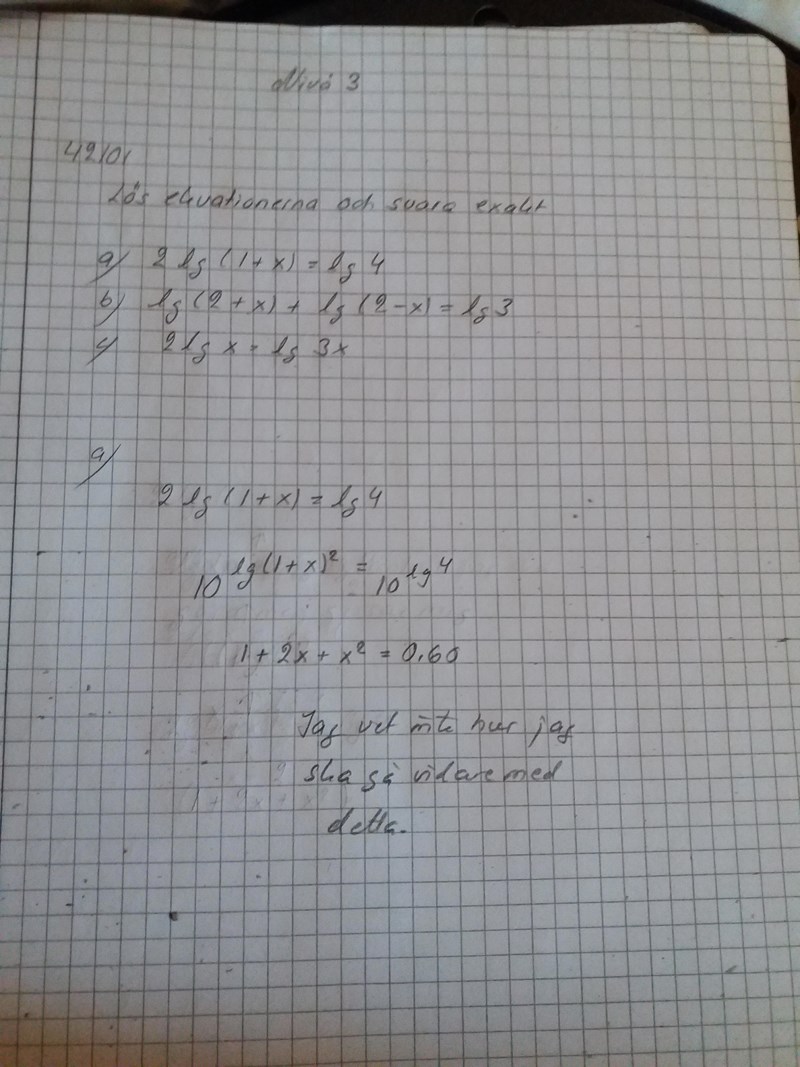 Nivå 3
4210,
Lös ekvationerna och svara exakt
a) 2 lg (1+x) = lg 4
b) lg (2+x) + lg (2-x) = lg 3
c) 2 lg x = lg 3x
a)
2 lg (1+x) = lg 4
10^lg(1+x)² = 10^lg4
1 + 2x + x² = 0.60
Jag vet inte hur jag
ska gå vidare med
detta.